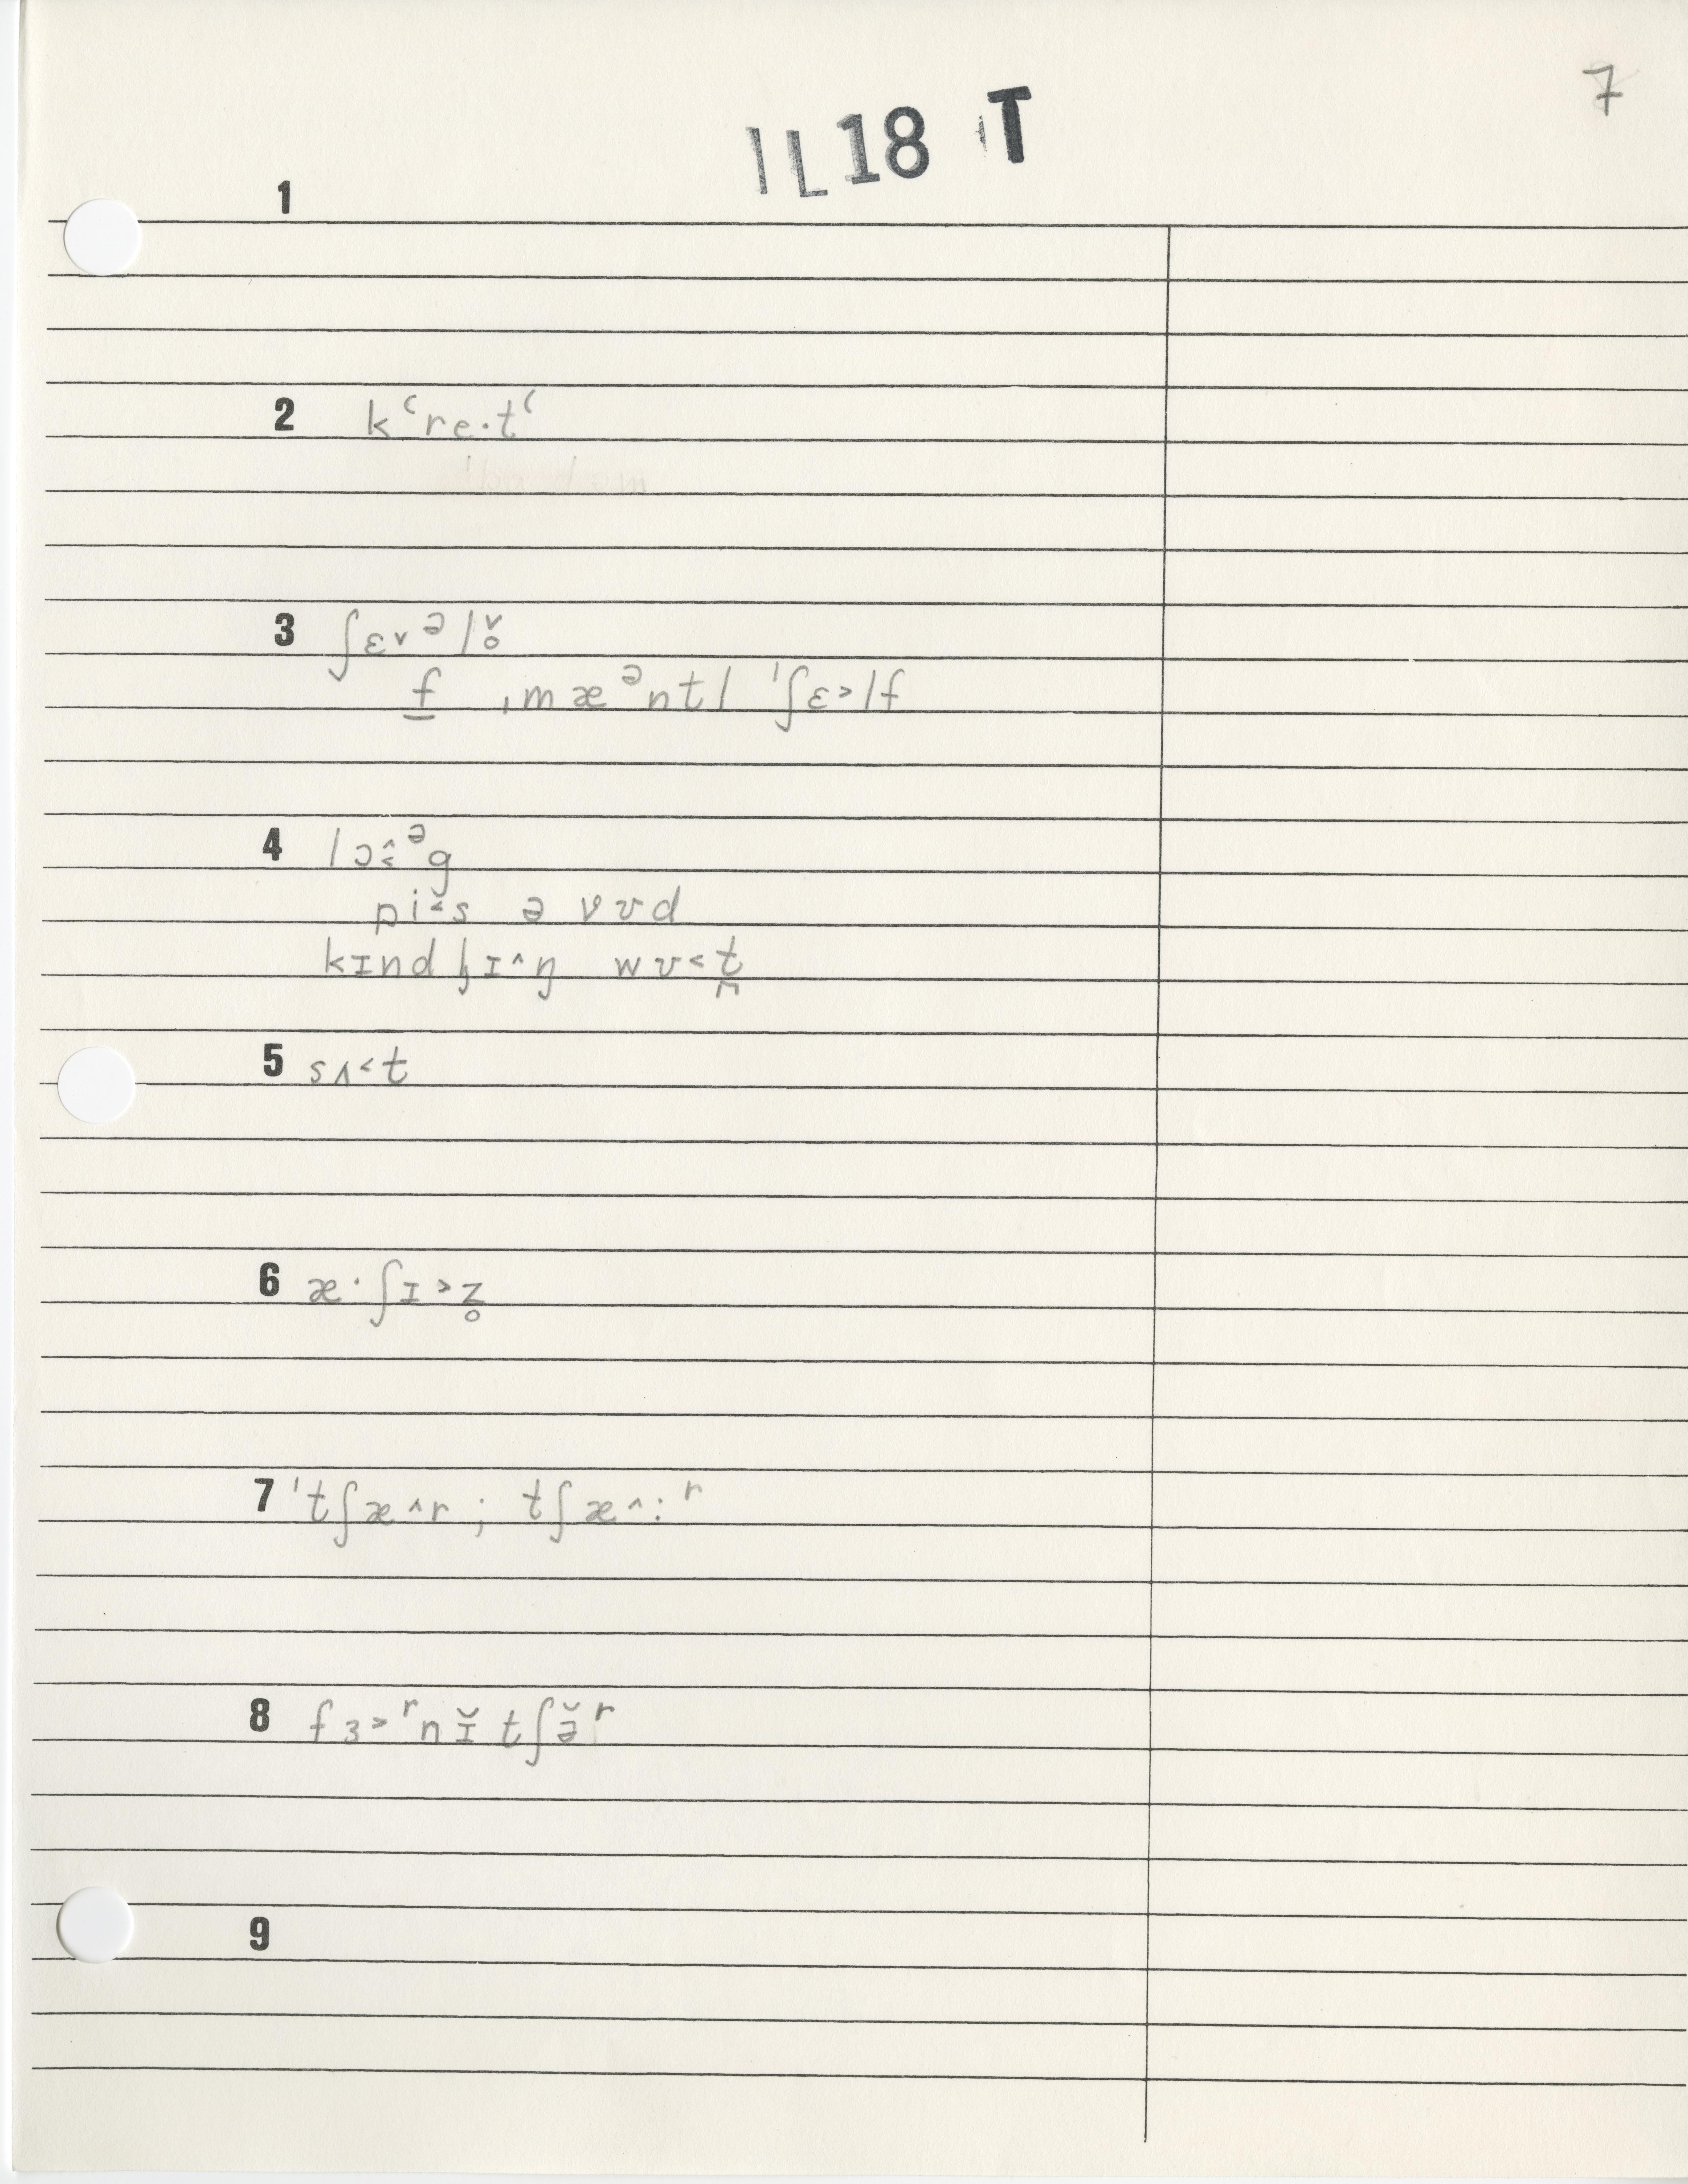 7
IL18 T
1
2 kʻre·tʻ
3 ʃɛ˅ᵊlv̥
f̲ ˌmæᵊntl ˈʃɛ˃lf
4 lɔ˄˂ᵊg
pi˂s ə wʊd
kɪndlɪ˄ŋ wʊ˂t̪
5 sʌ˂t
6 æ·ʃɪ˃z̥
7 ˈtʃæ˄r ; tʃæ˄:ʳ
8 fɜ˃ʳnɪ̆tʃə̆ʳ
9